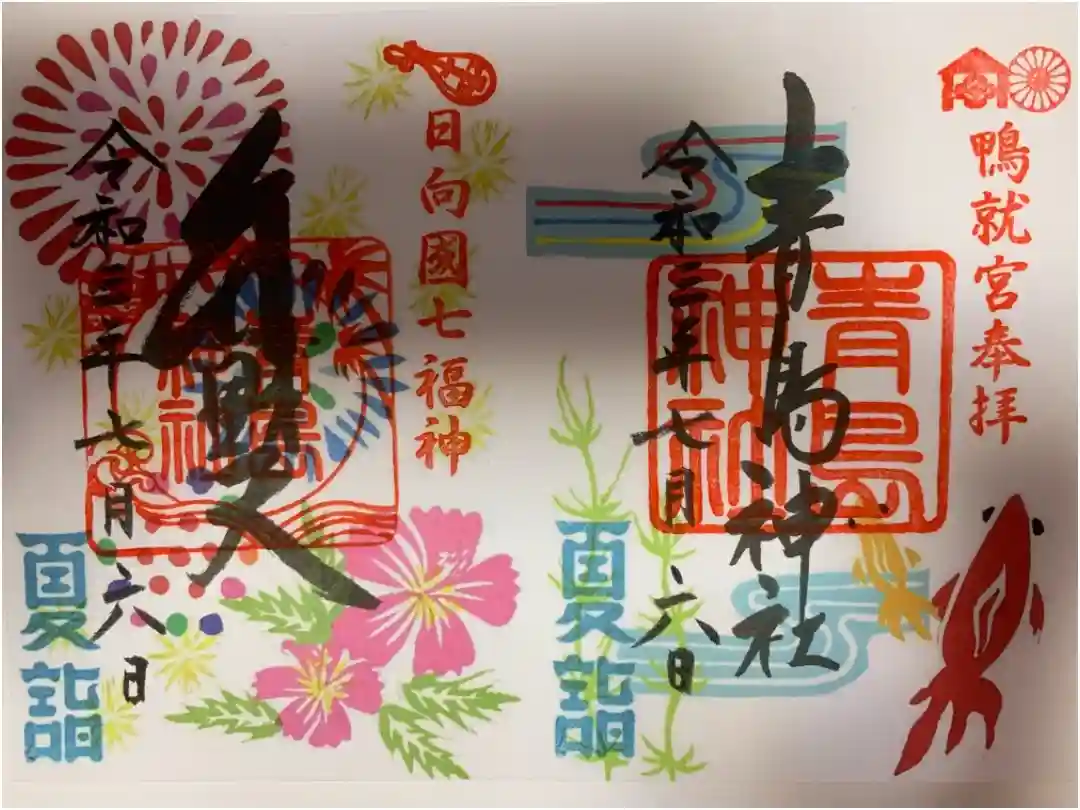 鴨就宮奉拝
青島神社
青島神社
令和三年七月六日
夏詣
日向國七福神
青島神社
令和三年七月六日
夏詣